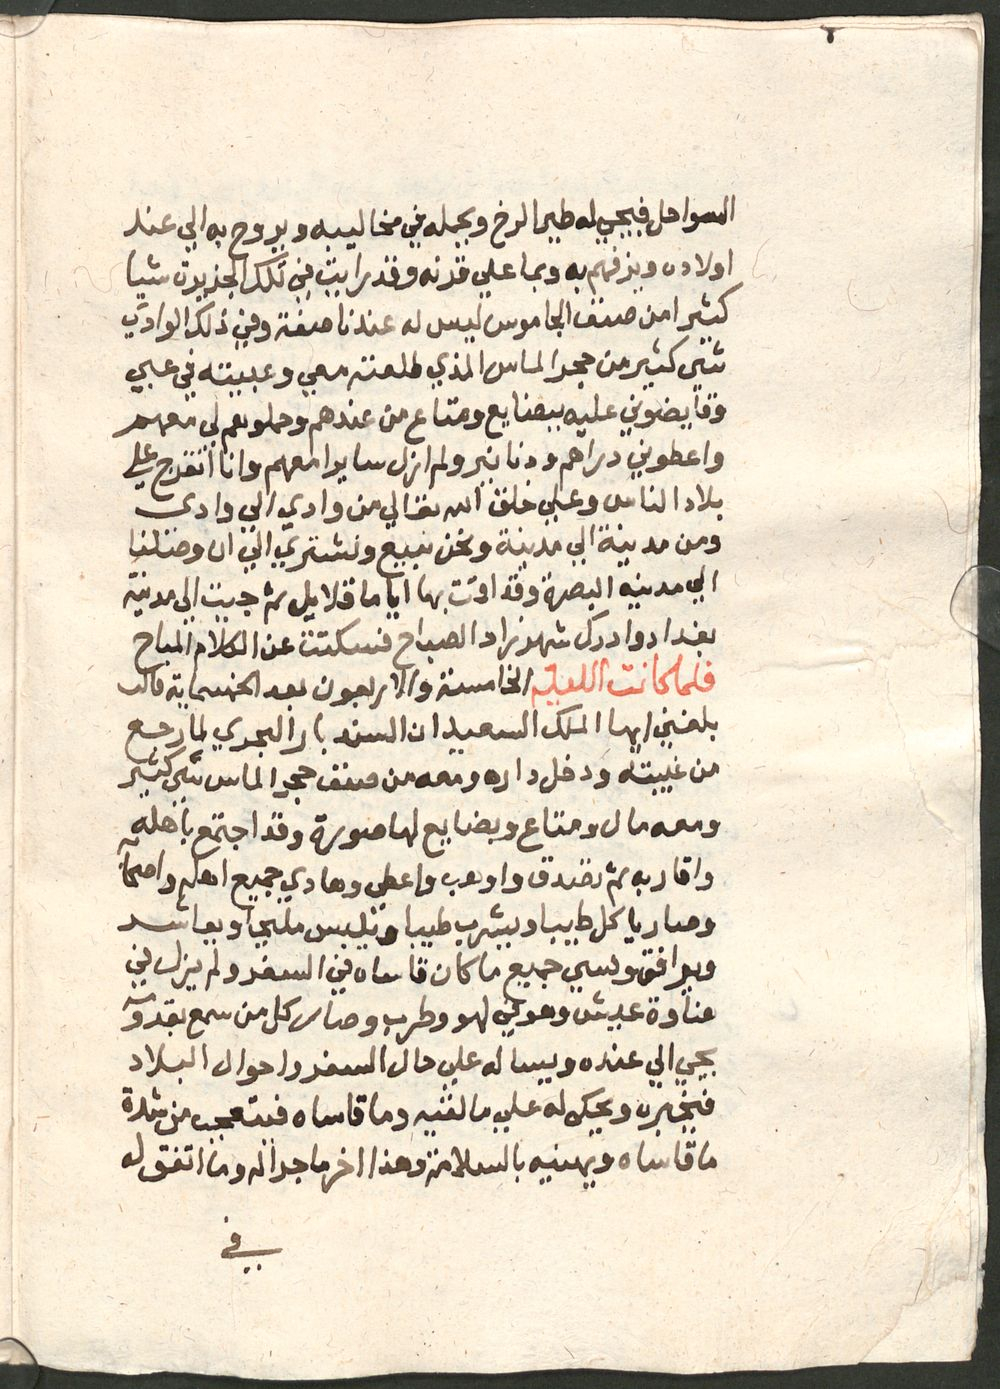 السواحل فيجي له طير الرخ ويحمله في مخاليبه ويروح به الي عند
اولاده ويزقهم به وبما علي قرنه وقد رايت في تلك الجزيرة شيا
كثيرا من صنف الجاموس ليس له عندنا صفة وفي ذلك الوادي
شي كثير من حجر الماس الذي طلعته معي وعبيته في عبي
وقايضوني عليه ببضايع ومتاع من عندهم وحملوهم لي معهم
واعطوني دراهم ودنانير ولم ازل سايرا معهم وانا اتفرج علي
بلاد الناس وعلي خلق الله تعالي من وادي الي وادي
ومن مدينة الي مدينة ونحن نبيع ونشتري الي ان وصلنا
الي مدينه البصرة وقد اقمت بها اياما قلايل ثم جيت الي مدينة
بغداد وادرك شهرزاد الصباح فسكتت عن الكلام المباح
فلما كانت الليلة الخامسة والاربعون بعد الخمسماية قالت
بلغني ايها الملك السعيد ان السندباد البحري لما رجع
من غيبته ودخل داره ومعه من صنف حجر الماس شي كثير
ومعه مال ومتاع وبضايع لها صورة وقد اجتمع باهله
واقاربه ثم تصدق واوهب واعطي وهادي جميع اهله واصحابه
وصار ياكل طيبا ويشرب طيبا ويلبس مليحا ويعاشر
ويرافق ونسي جميع ما كان قاساه في السفر ولم يزل في
هناوة عيش وهو في لهو وطرب وصار كل من سمع بقدومه
يجي الي عنده ويساله علي حال السفر واحوال البلاد
فيخبره ويحكي له علي ما لقيه وما قاساه فيتعجب من شدة
ما قاساه ويهنيه بالسلامة وهذا اخر ما جرا له وما اتفق له
في